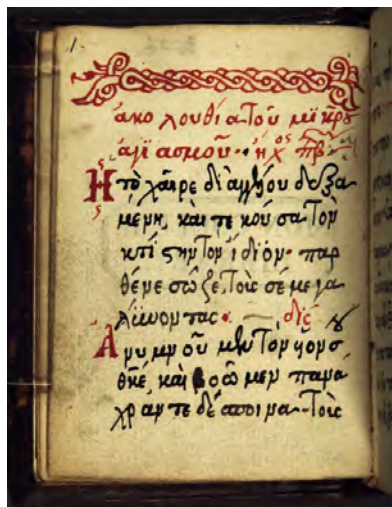 1.
ἀκολουθία τοῦ μϊκροῦ
ἁγϊασμοῦ·· ἦχος
Ἡ τὸ χαῖρε δϊ ἀγγέλου δεξα
μένη, καὶ τεκοῦσα τὸν
κτίστην τὸν ἴδιον· παρ
θένε σῶζε, τοὺς σὲ μεγα
λύνοντας· δίς
Ἀνυμνοῦμεν τὸν υἱόν σου
θκέ, καὶ βοῶμεν πανά
χραντε δέσποινα· τοὺς